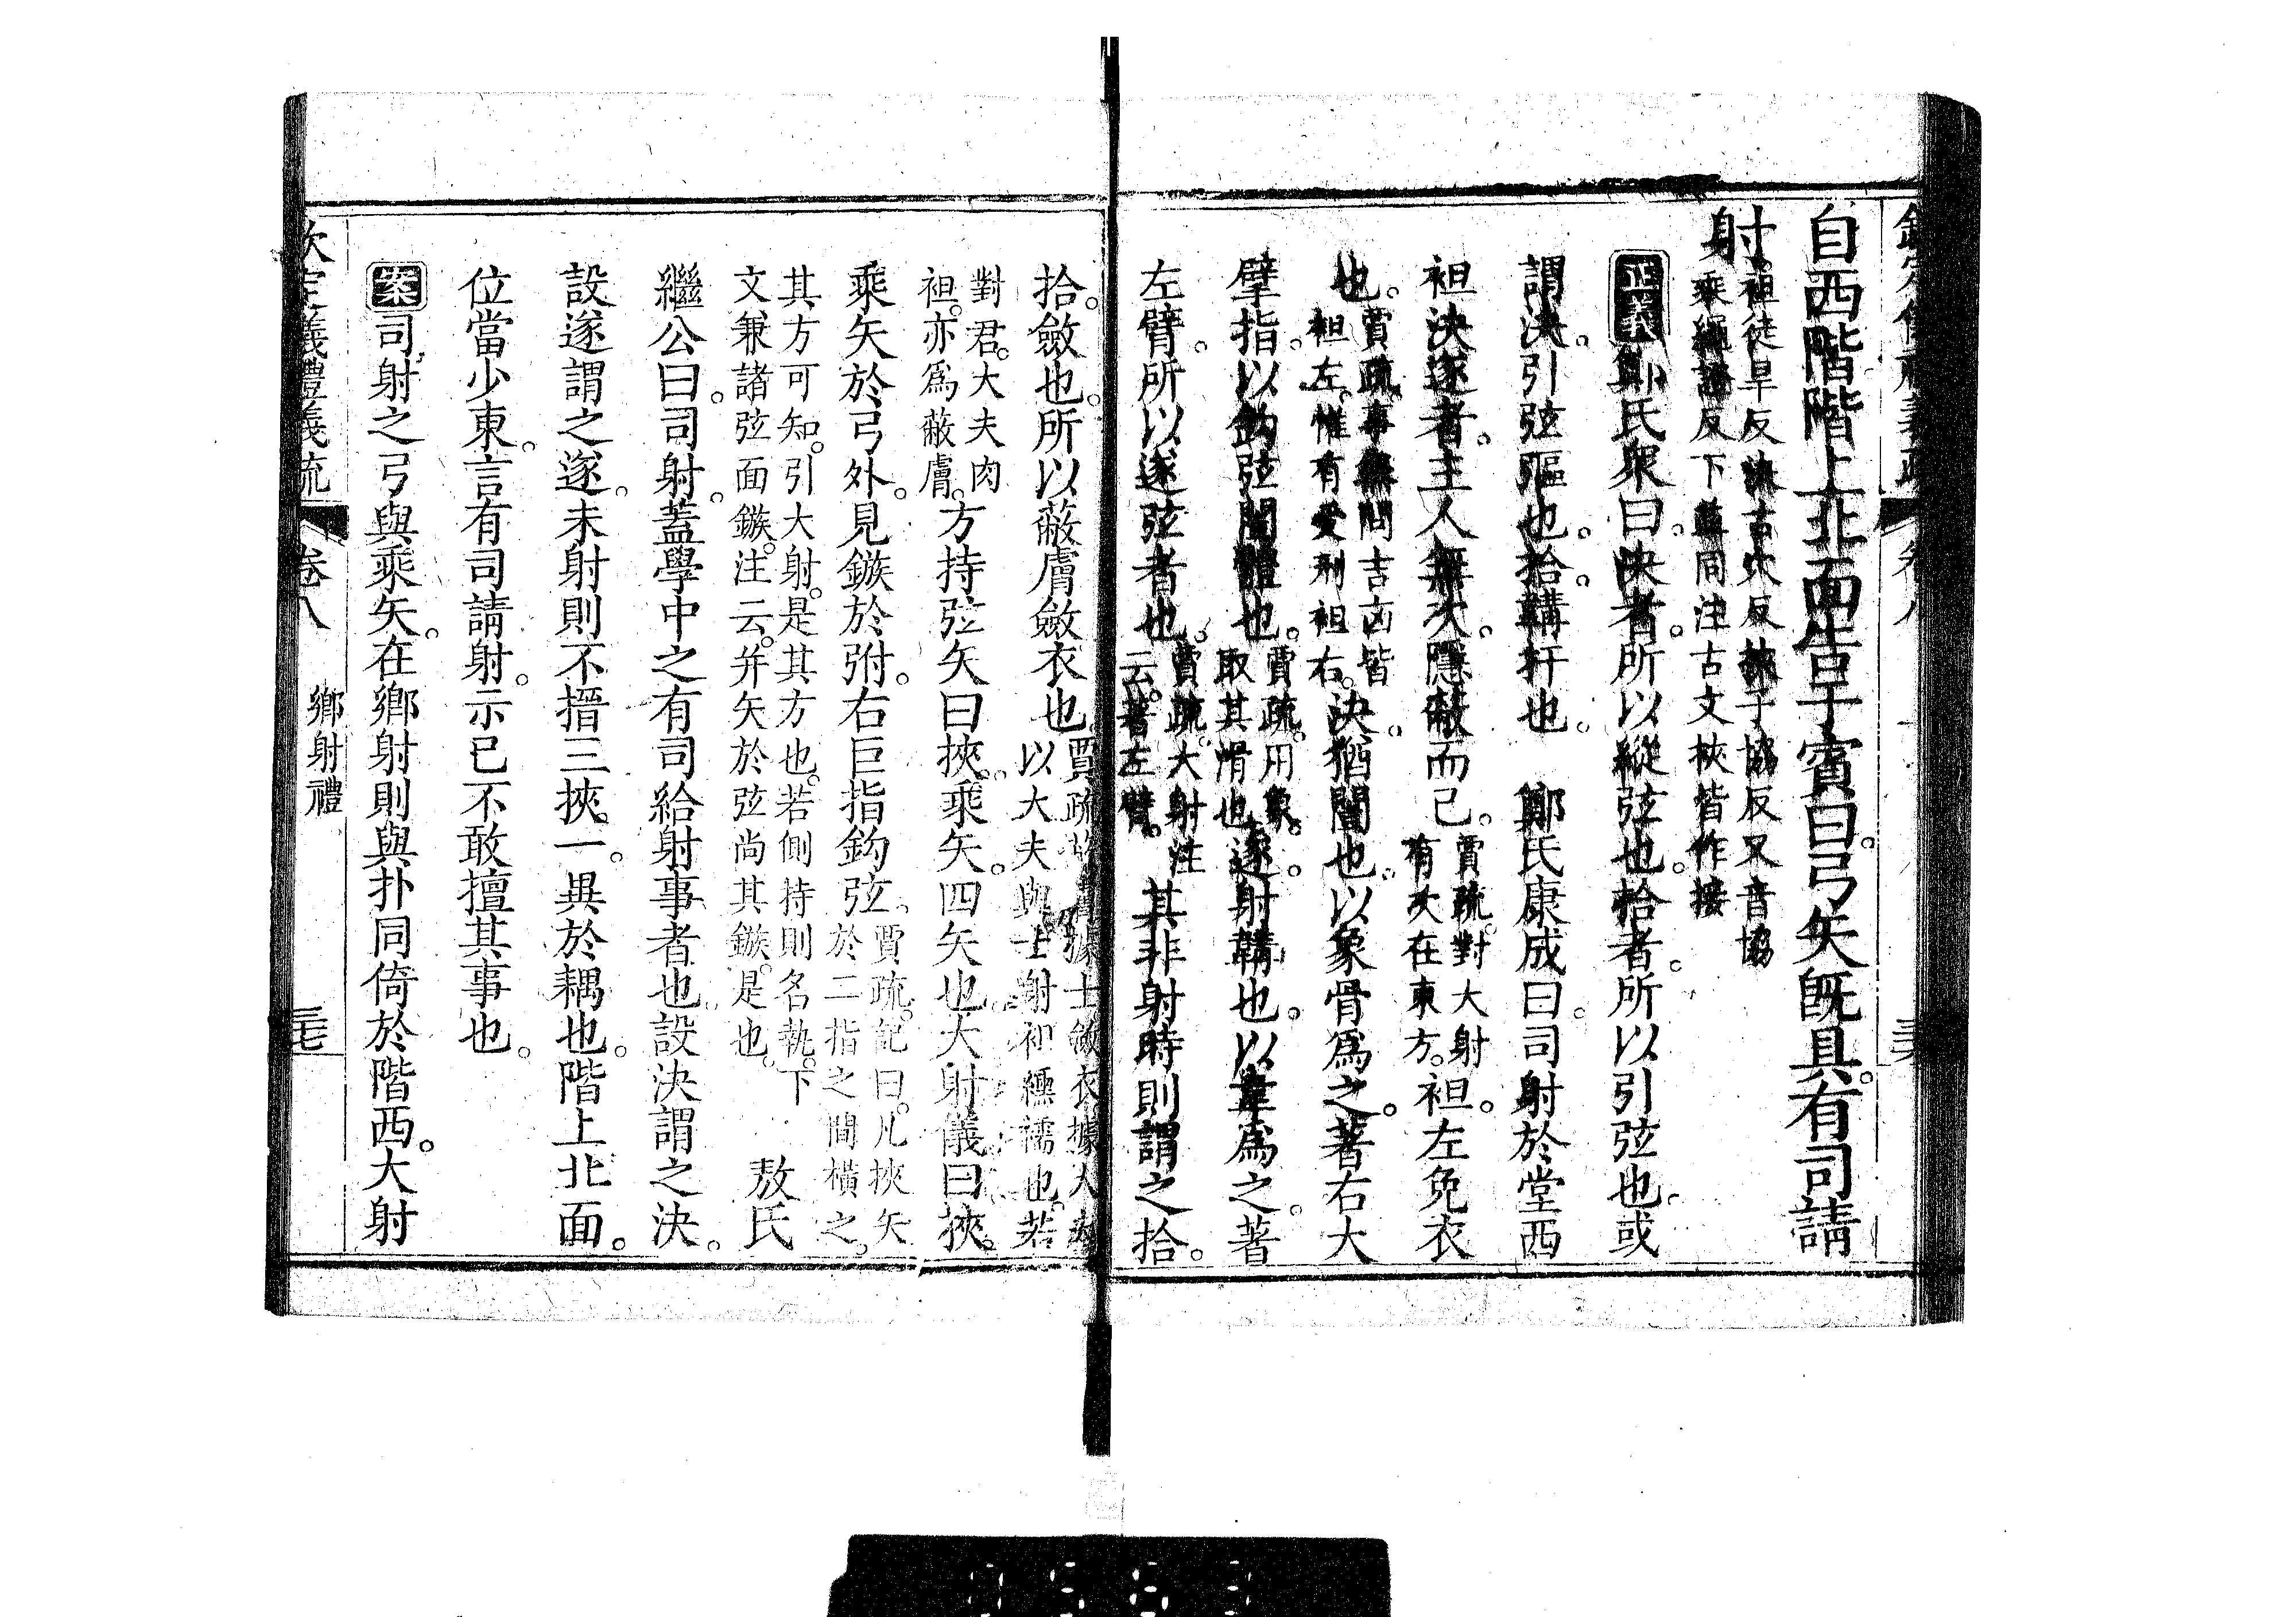 自西階階上北面告于賓曰弓矢旣具有司請
射袒徒旱反決古穴反挾子協反又音協
乘繩證反下並同注古文挾皆作接
正義鄭氏衆曰決者所以縱弦也拾者所以引弦也或
謂決引弦彄也拾韝扞也　鄭氏康成曰司射於堂西
袒決遂者主人無次隱蔽而已賈疏對大射
有次在東方袒左免衣
也賈疏事無問吉凶皆
袒左惟有受刑袒右決猶闓也以象骨爲之著右大
擘指以鈎弦闓體也賈疏用象
取其滑也遂射韝也以韋爲之著
左臂所以遂弦者也賈疏大射注
云著左臂其非射時則謂之拾
拾斂也所以蔽膚斂衣也賈疏據士斂衣據大夫
以大夫與士射袒纁襦也若
對君大夫肉
袒亦爲蔽膚方持弦矢曰挾乘矢四矢也大射儀曰挾
乘矢於弓外見鏃於弣右巨指鈎弦賈疏記曰凡挾矢
於二指之間橫之
其方可知引大射是其方也若側持則名執下
文兼諸弦面鏃注云并矢於弦尚其鏃是也　敖氏
繼公曰司射蓋學中之有司給射事者也設決謂之決
設遂謂之遂未射則不搢三挾一異於耦也階上北面
位當少東言有司請射示已不敢擅其事也
案司射之弓與乘矢在鄉射則與扑同倚於階西大射
欽定儀禮義疏　卷八　鄉射禮　三七